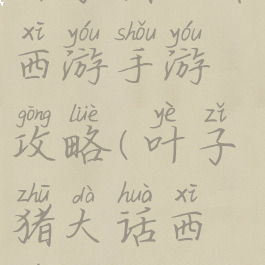 xī yóu shǒu yóu
西游手游
gōng lüè yè zǐ
攻略(叶子
zhū dà huà xī
猪大话西